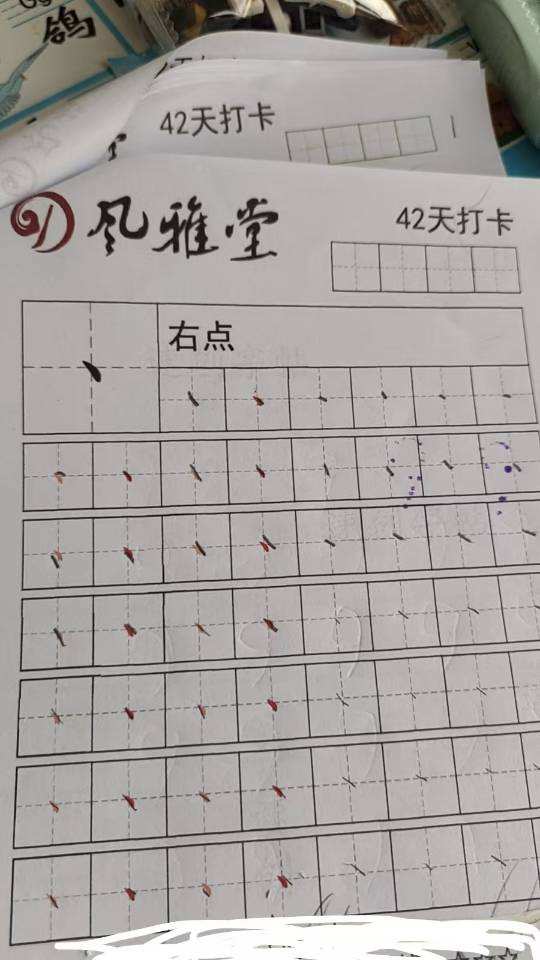 鸽
42天打卡
风雅堂
42天打卡
右点